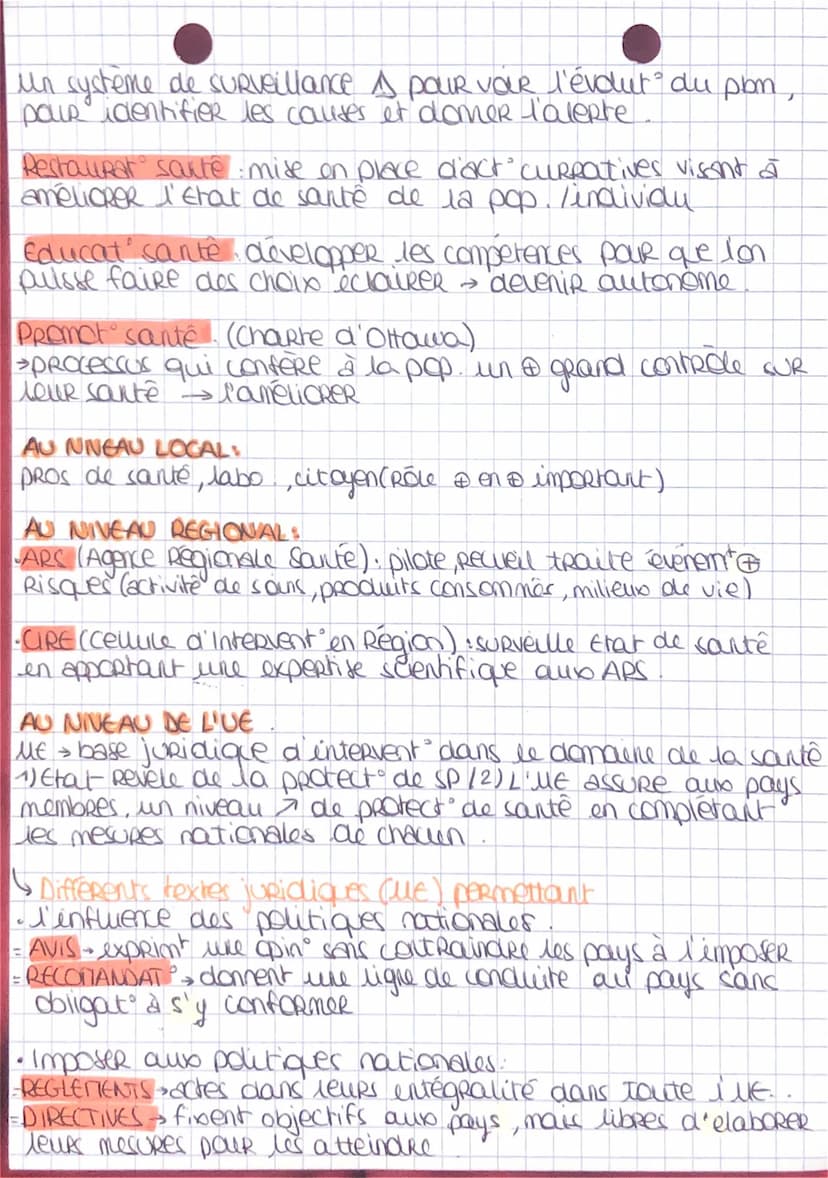 un système de surveillance Δ pour voir l'évolut° du pbm,
pour identifier les causes et donner l'alerte.
Restaurat° santé : mise en place d'act° curratives visant à
améliorer l'état de santé de la pop. /individu
Educat° santé : développer les compétences pour que l'on
puisse faire des choix éclairer → devenir autonome.
Promot° santé : (Charte d'Ottawa)
→ processus qui confère à la pop. un ⊕ grand contrôle sur
leur santé → l'améliorer
AU NIVEAU LOCAL :
pros de santé, labo., citoyen (Rôle ⊕ en ⊕ important)
AU NIVEAU REGIONAL :
•ARS (Agence Régionale Santé) : pilote, recueil traite évènemt ⊕
Risques (activité de soins, produits consommés, milieux de vie)
•CIRE (Cellule d'Intervent° en Région) : surveille état de santé
en apportant une expertise scientifique aux ARS.
AU NIVEAU DE L'UE
UE → base juridique d'intervent° dans le domaine de la santé
1) Etat révèle de la protect° de SP /2) L'UE assure aux pays
membres, un niveau ↗ de protect° de santé en complétant
les mesures nationales de chacun.
↳ Différents textes juridiques (UE) permettant
• l'influence des politiques nationales.
= AVIS → exprimt une opin° sans contraindre les pays à l'imposer
= RECOMANDAT° → donnent une ligne de conduite au pays sans
obligat° à s'y conformer
• Imposer aux politiques nationales :
- REGLEMENTS → actes dans leurs entégralité dans toute l'UE..
= DIRECTIVES → fixent objectifs aux pays, mais libres d'elaborer
leurs mesures pour les atteindre